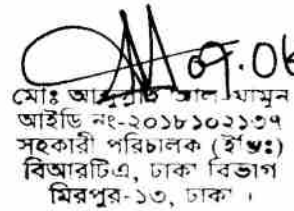 09.06
মোঃ আল মামুন
আইডি নং-২০১৮১০২১৩৭
সহকারী পরিচালক (ইঞ্জিঃ)
বিআরটিএ, ঢাকা বিভাগ
মিরপুর-১৩, ঢাকা ।